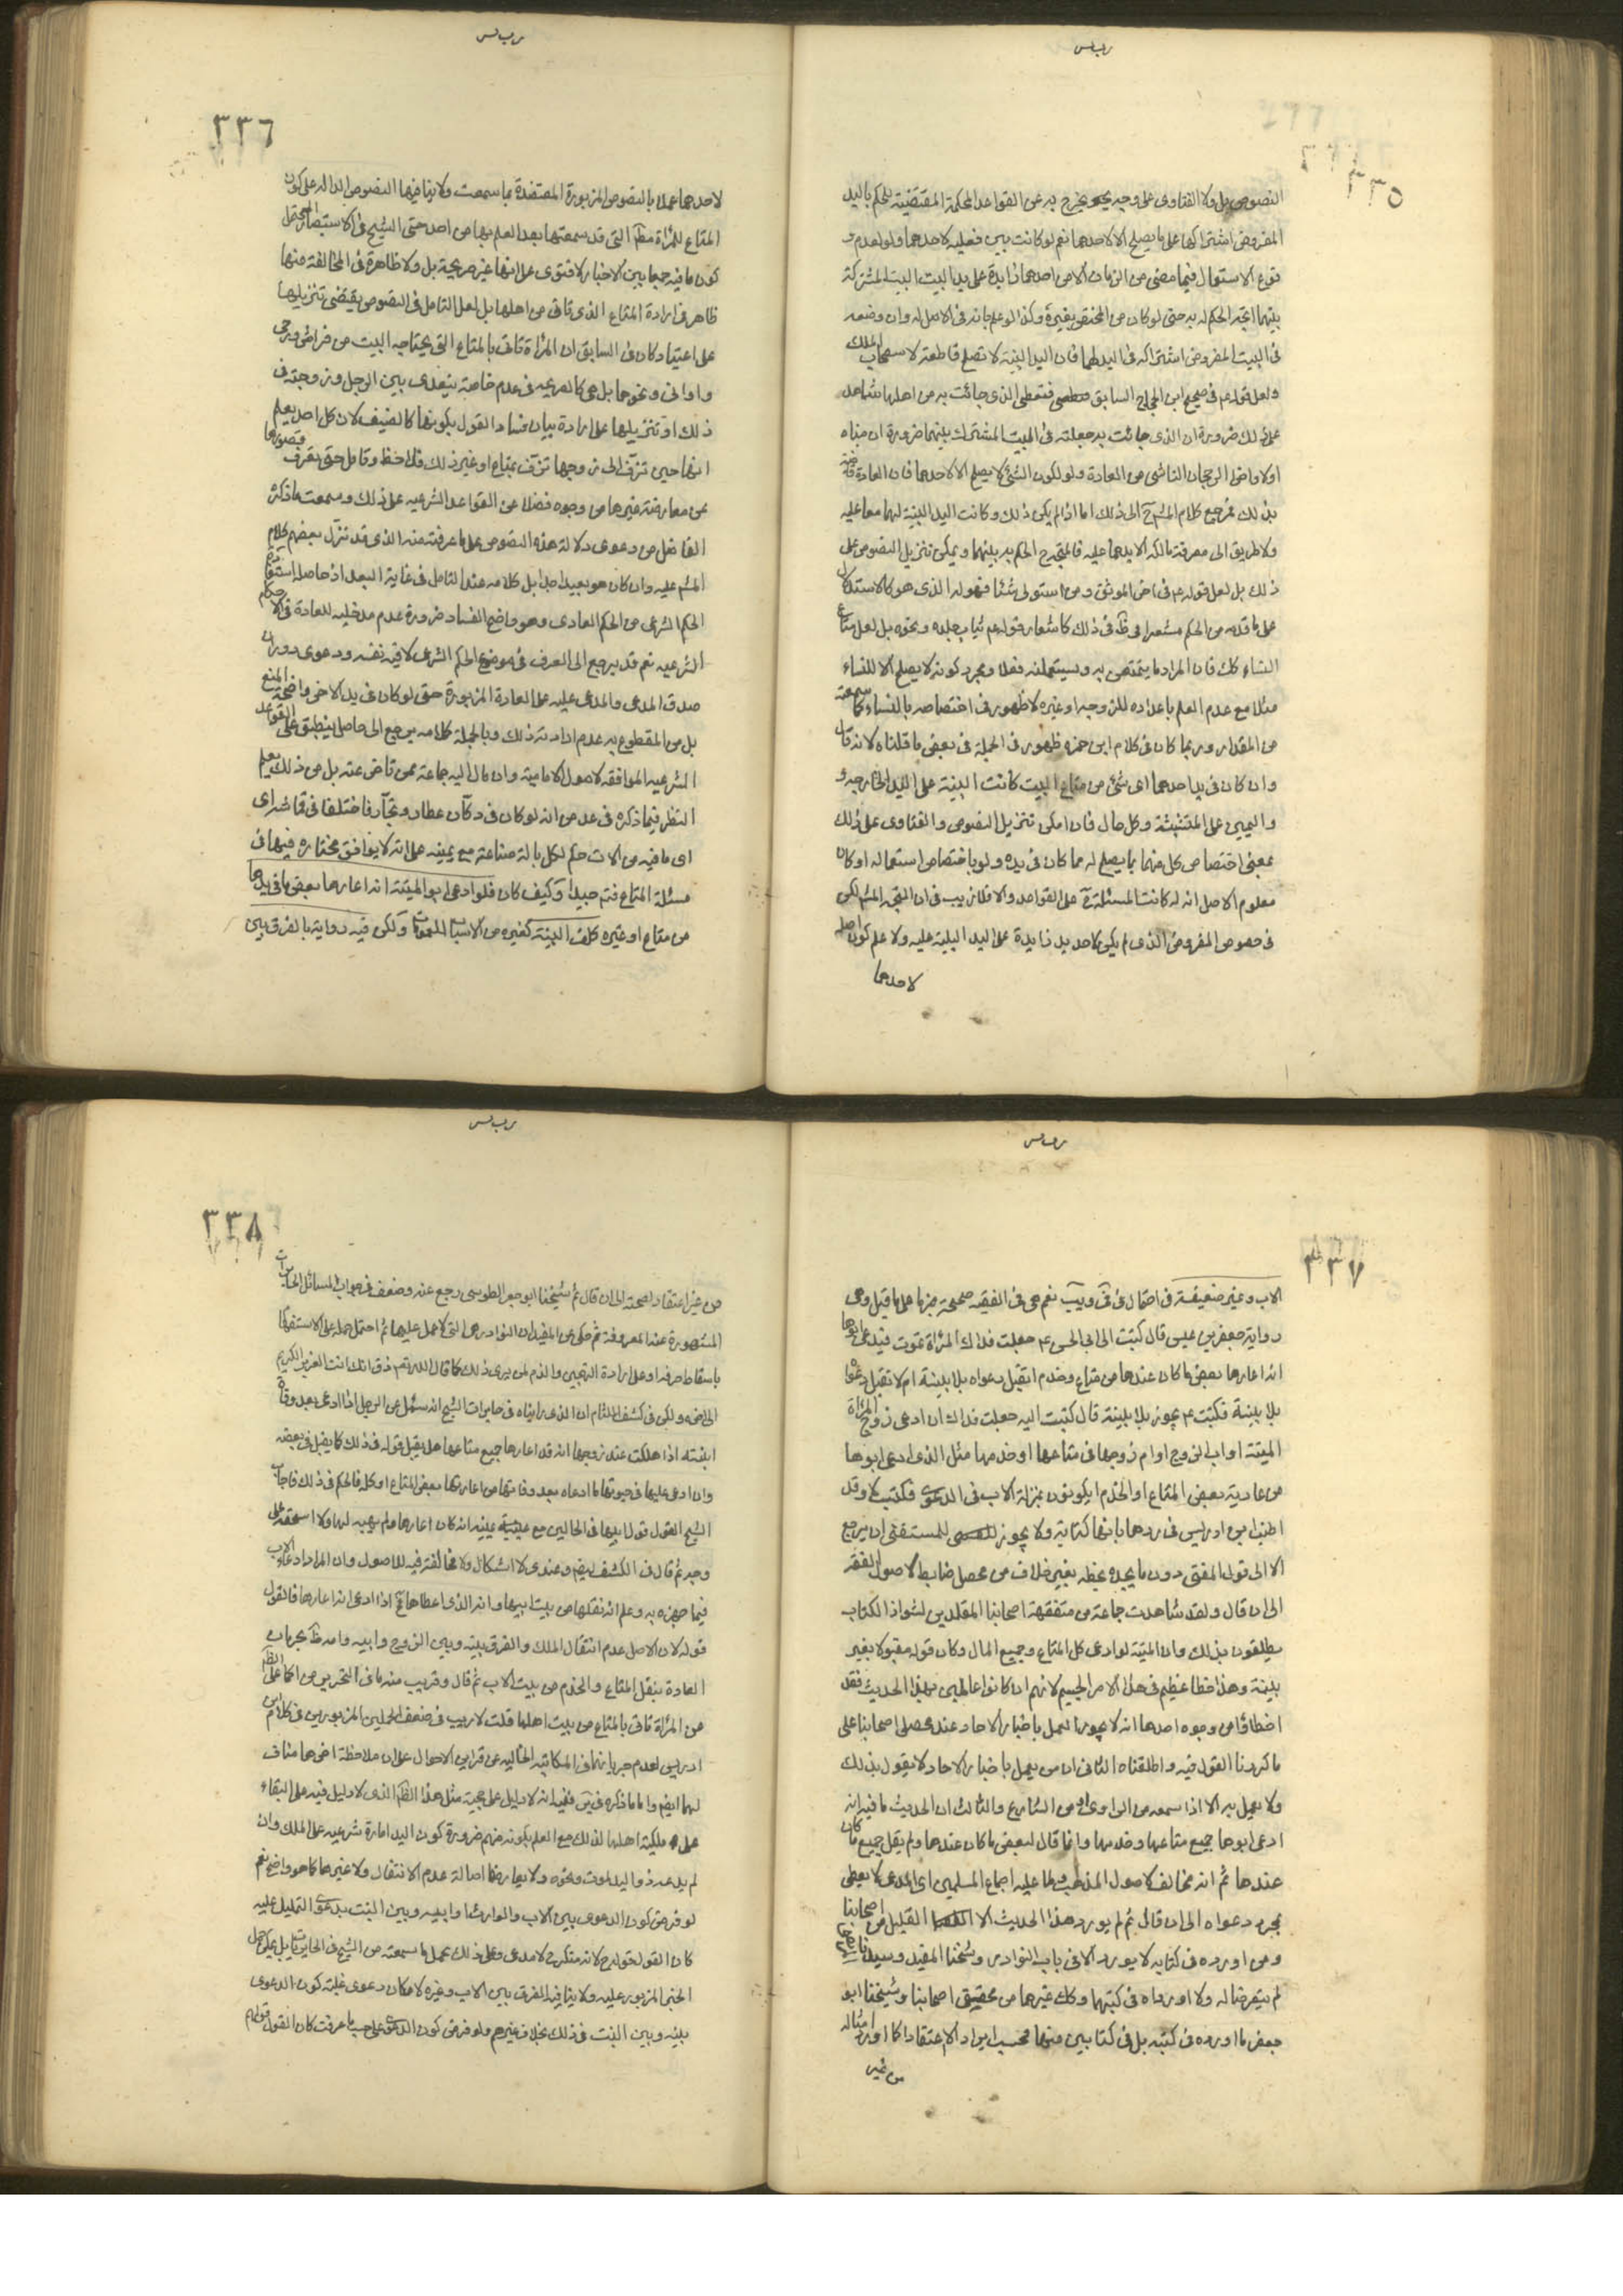 ٣٣٥
النصوص بل ولا الفتاوى على وجه يخرج به عن القواعد المحكمة المقتضية للحكم باليد
المفروض اشتراكها على ما يصلح الا لاحدهما نعم لو كانت بينة فعليه لاحدهما ولو لعدم و
قوع الاستعمال فيما مضى من الزمان الا من احدهما زايدة على يد البيت البيت المشتركة
بينهما اتجه الحكم له به حتى لو كان من المختص بغيره وكذا لو علم بانه في الاصل له وان وضعه
في البيت المفروض اشتراكه في اليد لهما فان اليد البيتية لا تصلح قاطعة لاستصحاب الملك
ولعل قوله عم في صحيح ابن الحجاج السابق فتعطى الذي جائت به من اهلها شاهد
على ذلك ضرورة ان الذي جائت به جعلته في البيت المشترك بينهما ضرورة ان مبناه
اولا واخرا الرجحان الناشى من العادة ولو لكون الشئ لا يصلح الا لاحدهما فان العادة قاضية
بذلك فرجع كلام المش ح الى ذلك اما اذا لم يكن ذلك وكانت اليد البيتية لهما معا عليه
ولا طريق الى معرفة مالكه الا يدهما عليه فالمتجه ح الحكم به بينهما ويمكن تنزيل النصوص على
ذلك بل لعل قوله عم في اخر الموثق ومن استولى على شئ منه فهو له الذي هو كالاستدلال
على ما قدمه من الحكم مشعرا في ذلك كاشعار قوله عم ثياب جلده ونحوه بل لعل متاع
النساء كك فان المراد ما يتمتعن به ويستعملنه فعلا ومجرد كونه لا يصلح الا للنساء
مثلا مع عدم العلم باعداده للزوجة او غيره لا ظهور في اختصاصه بالنساء كما سمعته
من المقدار وربما كان في كلام ابن حمزه ظهور في الجملة في بعض ما قلناه لانه قال
وان كان في يد احدهما اى شئ من متاع البيت كانت البينة على اليد الخارجه و
واليمين على المتشبثة وكل حال فان امكن تنزيل النصوص والفتاوى على ذلك
بمعنى اختصاص كل منهما بما يصلح له مما كان في يده ولو باختصاص استعماله او كان
معلوم الاصل انه له كانت المسئلة ح على القواعد والا فلا ريب في ان المتجه المش لكن
في خصوص المفروض الذي لم يكن لاحد يد زايدة على اليد البيتية عليه ولا علم كون اصله
لاحدهما
٣٣٦
لاحدهما عملا بالنصوص المزبورة المعتضدة بما سمعت ولا ينافيها النصوص الداله على كون
المتاع للمرأة مط التي قد سمعتها بعد العلم بها من احد حتى الشيخ في الاستبصار المحتمل
كون ما فيه جمعا بين الاخبار لا فتوى على انها غير صريحة بل ولا ظاهرة في المخالفة منها
ظاهر في ارادة المتاع الذي تاتى من اهلها بل لعل التامل في النصوص يقتضى تنزيلها
على اعتياد كان في السابق ان المرأة تاتى بالمتاع التي يحتاجه البيت من فراش ورحى
واوانى ونحوها بل هي كالصريحه في عدم خاصة بينهدى بين الرجل وزوجته في
ذلك او تنزيلها على ارادة بيان فساد القول بكونها كالضيف لان كل احد يعلم
انها حين تزف الى زوجها تزف بمتاع او غير ذلك فلاحظ وتامل حتى تعرف قصورها
عن معارضة غيرها من وجوه فضلا عن القواعد الشرعيه على ذلك وسمعت ما ذكره
الفاضل من دعوى دلالة هذه النصوص على ما عرفته منه الذي قد نزل بعضهم كلام
المش عليه وان كان هو بعيدا جدا بل كلامه عند التامل في غاية البعد اذ حاصله استفادة
الحكم الشرعى من الحكم العادى وهو واضح الفساد ضرورة عدم مدخليه للعادة في الاحكام
الشرعيه نعم قد يرجع الى العرف في موضوع الحكم الشرعى لا فيه نفسه ودعوى دوران
صدق المدعى والمدعى عليه على العادة المزبورة حتى لو كان في يد الاخر واضحة المنع
بل من المقطوع به عدم ارادته ذلك وبالجملة كلامه يرجع الى حاصل ينطبق على القواعد
الشرعيه الموافقه لاصول الامامية وان مال اليه جماعة ممن تاخر عنه بل من ذلك يعلم
النظر فيما ذكره في عد من انه لو كان في دكان عطار ونجار فاختلفا في قماشه اى
اى ما فيه من الات حكم لكل بالة صناعته مع يمينه على انه لا يوافق مختاره فيها في
مسئلة المتاع فتم جيدا وكيف كان فلو ادعى ابو الميتة انه اعارها بعض ما في يدها
من متاع او غيره كلف البينة كغيره من الانساب ولكن فيه رواية بالفرق بين
٣٣٧
الاب وغيره ضعيفة في احتمال في ق ويب نعم هي في الفقيه صحيحة جزما على ما قيل وهي
رواية جعفر بن عيسى قال كتبت الى ابى الحسن عم جعلت فداك المرأة تموت فيدعى ابوها
انه اعارها بعض ما كان عندها من متاع وخدم اتقبل دعواه بلا بينة ام لا تقبل دعواه
بلا بينة فكتب عم يجوز بلا بينة قال كتبت اليه جعلت فداك ان ادعى زوج المرأة
الميتة او اب الزوج او ام زوجها في متاعها او خدمها مثل الذي ادعى ابوها
من عارية بعض المتاع او الخدم ايكونون بمنزلة الاب في الدعوى فكتب لا وقد
اطنب ابن ادريس في ردها بانها كتابة ولا يجوز للمستفتى ان يرجع
الا الى قول المفتى دون ما يجده بخطه بغير خلاف من محصل ضابط لاصول الفقه
الى ان قال ولقد شاهدت جماعة من متفقهة اصحابنا المقلدين لشواذ الكتاب
يطلقون بذلك وان الميتة لو ادعى كل المتاع وجميع المال وكان قوله مقبولا بغير
بينة وهذا خطا عظيم في هذا الامر الجسيم لانهم ان كانوا عاملين بهذا الحديث فقد
اخطاؤا من وجوه احدها انه لا يجوز العمل باخبار الاحاد عند محصلى اصحابنا على
ما كررنا القول فيه واطلقناه الثانى ان من يعمل باخبار الاحاد لا يقول بذلك
ولا يعمل به الا اذا سمعه من الراوى او من الشارع والثالث ان الحديث ما فيه انه
ادعى ابوها جميع متاعها وخدمها وانما قال لبعض ما كان عندها ولم يقل جميع ما كان
عندها ثم انه مخالف لاصول المذهب وما عليه اجماع المسلمين اى المدعى لا يعطى
بمجرد دعواه الى ان قال ثم لم يورد هذا الحديث الا القليل من اصحابنا
ومن اورده في كتابه لا يورده الا في باب النوادر وشيخنا المفيد وسيدنا المرتضى
لم يتعرضا له ولا اورداه في كتبهما وكك غيرهما من محققى اصحابنا وشيخنا ابو
جعفر ما اورده في كتبه بل في كتابين منها فحسب ايرادا لا اعتقادا كما اورد امثاله
من غير
٣٣٨
من غير اعتقاد لصحته الى ان قال ثم شيخنا ابو جعفر الطوسى رجع عنه وضعفه في جواب المسائل الحايريات
المشهورة عند المعروفة ثم حكى عن المفيد ان النوادر هى التي لا عمل عليها ثم احتمل حمله على الاستفهام
باسقاط حرفه او على ارادة التهجين والذم لمن يرى ذلك كما قال الله تعم ذق انك انت العزيز الكريم
الى اخره ولكن في كشف اللثام ان الذي رايناه في حايريات الشيخ انه سئل عن الرجل اذا ادعى بعد وفاة
ابنته اذا هلكت عند زوجها انه قد اعارها جميع متاعها هل يقبل قوله في ذلك كما يقبل في بعضه
وان ادعى عليها في حيوتها ما ادعاه بعد وفاتها من اعارتها بعض المتاع او كله فالحكم في ذلك فاجاب
الشيخ القول قول ابيها في الحالين مع يمينه انه كان اعارها ولم يهبه لها ولا استحقته على
وجه ثم قال في الكشف ايض وعندى لا اشكال ولا مخالفة فيه للاصول وان المراد ادعاء الاب
فيما جهزه به وعلم انه نقلها من بيت ابيها وانه الذي اعطاها ثم اذا ادعى انه اعارها فالقول
قوله لان الاصل عدم انتقال الملك والفرق بينه وبين الزوج وابيه وامه ظ بجريان
العادة بنقل المتاع والخدم من بيت الاب ثم قال وقريب منه ما في التحرير من الحمل على الظ
من المرأة تاتى بالمتاع من بيت اهلها قلت لا ريب في ضعف الحملين المزبورين في كلام ابن
ادريس لعدم جريانهما في المكاتبه الخاليه عن قراين الاحوال على ان ملاحظة اخرها مناف
لهما ايض واما ما ذكره في ففيه انه لا دليل على حجية مثل هذا الظ الذي لا دليل فيه على البقاء
على ملكية اهلها لذلك مع العلم بكونه منهم ضرورة كون اليد امارة شرعيه على الملك وان
لم يدعه ذو اليد لموت ونحوه ولا يعارضها اصالة عدم الانتقال ولا غيرها كما هو واضح نعم
لو فرض كون الدعوى بين الاب والوارث او ابيه وبين البنت بدعوى التمليك عليه
كان القول قوله ح لانه منكر ح لا مدعى وعلى ذلك يحمل ما سمعته من الشيخ في الحايريات بل يمكن حمل
الخبر المزبور عليه ولا ينافيه الفرق بين الاب وغيره لامكان دعوى غلبة كون الدعوى
بينه وبين البنت في ذلك بخلاف غيرهم ولو فرض كون الدعوى على حسب ما عرفت كان القول قولهم